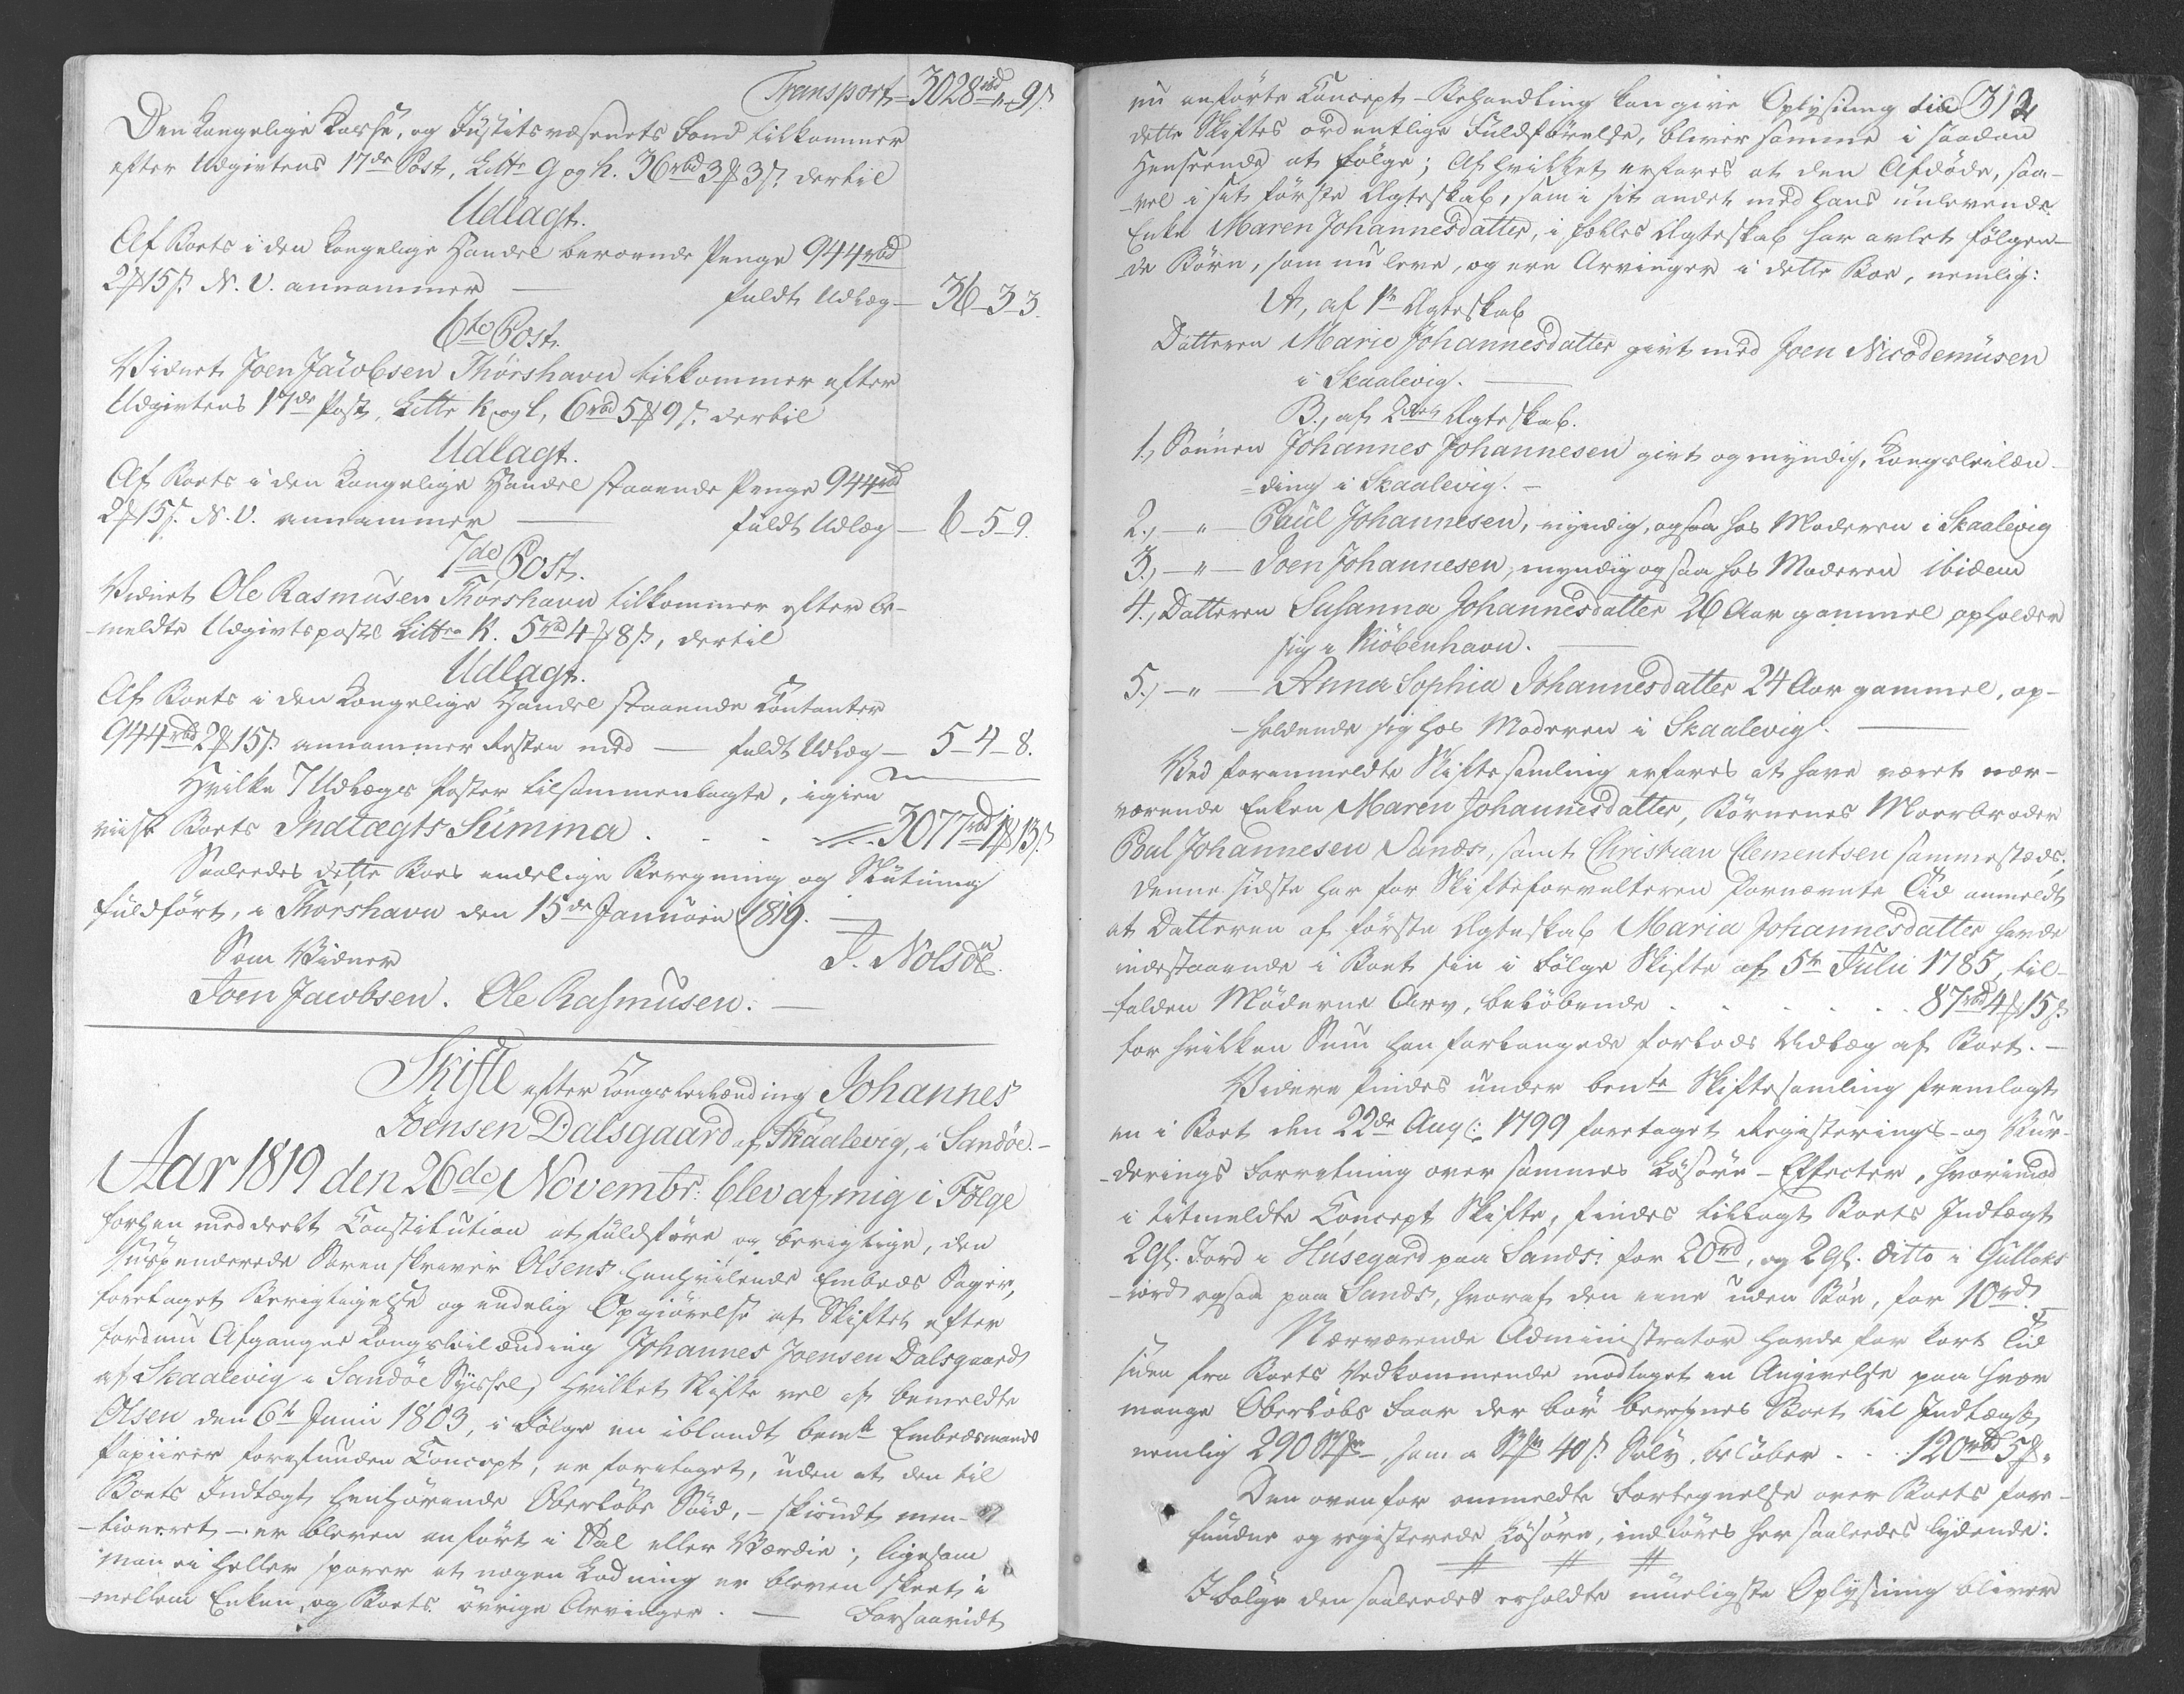 Transport – 3028 rbd „ – 9 s.
Den kongelige Kasse, og Justitsvæsenets Fond tilkommer
efter Udgivtens 17de Post, Littr g og h. 36 rbd 3 ₰ 3 s. dertil
Udlagt.
Af Boets i den kongelige Handel beroende Penge 944 rbd
2 ₰ 15 s. N. V. annammer — fuldt Udlæg — 36 – 3 – 3.
6te Post.
Vidnet Joen Jacobsen Thorshavn tilkommer efter
Udgivtens 17de Post, Littr k og l, 6 rbd 5 ₰ 9 s. dertil
Udlagt.
Af Boets i den kongelige Handel staaende Penge 944 rbd
2 ₰ 15 s. N. V. annammer — fuldt Udlæg — 6 – 5 – 9.
7de Post.
Vidnet Ole Rasmusen Thorshavn tilkommer efter be-
meldte Udgivtspost Littra K. 5 rbd 4 ₰ 8 s, dertil
Udlagt.
Af Boets i den kongelige Handel staaende Contanter
944 rbd 2 ₰ 15 s. annammer Resten med — fuldt Udlæg — 5 – 4 – 8.
Hvilke 7 Udlægs Poster tilsammenlagte, igien
viise Boets Indtægts Summa . . . 3077 rbd 1 ₰ 13 s.
Saaleedes dette Boes endelige Beregning og Slutning
fuldført, i Thorshavn den 15de Januarii 1819. —
Som Vidner J. Nolsøe.
Joen Jacobsen. Ole Rasmusen. —
Skifte efter Kongsleilænding Johannes
Joensen Dalsgaard af Skaalevig, i Sandøe. –
Aar 1819 den 26de Novembr: blev af mig i Følge
forhen meddeelt Constitution at fuldføre og berigtige, den
suspenderede Sorenskriver Olsens henhvilende Embeds Sager,
foretaget Berigtigelse og endelig Opgiørelse af Skiftet efter
fordum Afgangne Kongsleilænding Johannes Joensen Dalsgaard
af Skaalevig i Sandøe Syssel, hvilket Skifte vel af bemeldte
Olsen den 6te Junii 1803, i Følge en iblandt bemte Embedsmands
Papiirer forefunden Concept, er foretaget, uden at den til
Boets Indtægt henhørende Oberløbs Søid, – skiøndt men-
-tioneret – er bleven anført i Tal eller Værdie; ligesom
man ei heller sporer at nogen Lodning er bleven skeet i
-mellem Enken, og Boets øvrige Arvinger. — Forsaavidt
312
nu anførte Concept-Behandling kan give Oplysning til
dette Skiftes ordentlige Fuldførelse, bliver samme i saadan
Henseende at følge; Af hvilket erfares at den Afdøde, saa-
-vel i sit første Ægteskab, som i sit andet med hans nulevende
Enke Maren Johannesdatter, i fælles Ægteskab har avlet følgen-
-de Børn, som nu leve, og ere Arvinger i dette Boe, nemlig:
A, af 1te Ægteskab
Datteren Marie Johannesdatter givt med Joen Nicodemusen
i Skaalevig. —
B., af 2det Ægteskab.
1., Sønnen Johannes Johannesen givt og myndig, Kongsleilæn-
=ding i Skaalevig. –
2., – „ – Paul Johannesen, myndig, ogsaa hos Moderen i Skaalevig
3., – „ – Joen Johannesen, myndig ogsaa hos Moderen ibidem
4., Datteren Susanna Johannesdatter 26 Aar gammel opholder
sig i Kiöbenhavn. —
5., – „ – Anna Sophia Johannesdatter 24 Aar gammel, op-
-holdende sig hos Moderen i Skaalevig. —
Ved foranmeldte Skiftesamling erfares at have været nær-
værende Enken Maren Johannesdatter, Børnenes Moerbroder
Poul Johannesen Sands, samt Christian Clementsen sammestæds,
denne sidste har for Skifteforvalteren fornævnte Tid anmeldt
at Datteren af første Ægteskab Maria Johannesdatter havde
indestaaende i Boet sin i Følge Skifte af 5te Julii 1785, til-
-falden Møderne Arv, beløbende . . . . . 87 rbd 4 ₰ 15 s.
for hvilken Sum han forlangede forlods Udlæg af Boet. –
Videre findes under bente Skiftesamling fremlagt
en i Boet den 22de Aug: 1799 foretaget Registerings- og Vur-
-derings Forretning over sammes Løsøre-Effecter, hvorimod
i titmeldte Concept Skifte, findes tillagt Boets Indtægt
2 Gl. Jord i Husegard paa Sands: for 20 rd, og 2 Gl. ditto i Gullaks
-iord ogsaa paa Sands, hvoraf den eene uden Böe, for 10 rd.
Nærværende Administrator havde for kort Tid
siden fra Boets Vedkommende modtaget en Angivelse paa hvor
mange Oberløbs Faar der bør beregnes Boet til Indtægt,
nemlig 290 Stk, som a Stk 40 s. Sølv, beløber . . 120 rbd 5 ₰ „
Den ovenfor anmeldte Fortegnelse over Boets fore-
fundne og registerede Løsøre, indføres her saaleedes lydende:
# # #
I Følge den saaleedes erholdte mueligste Oplysning bliver